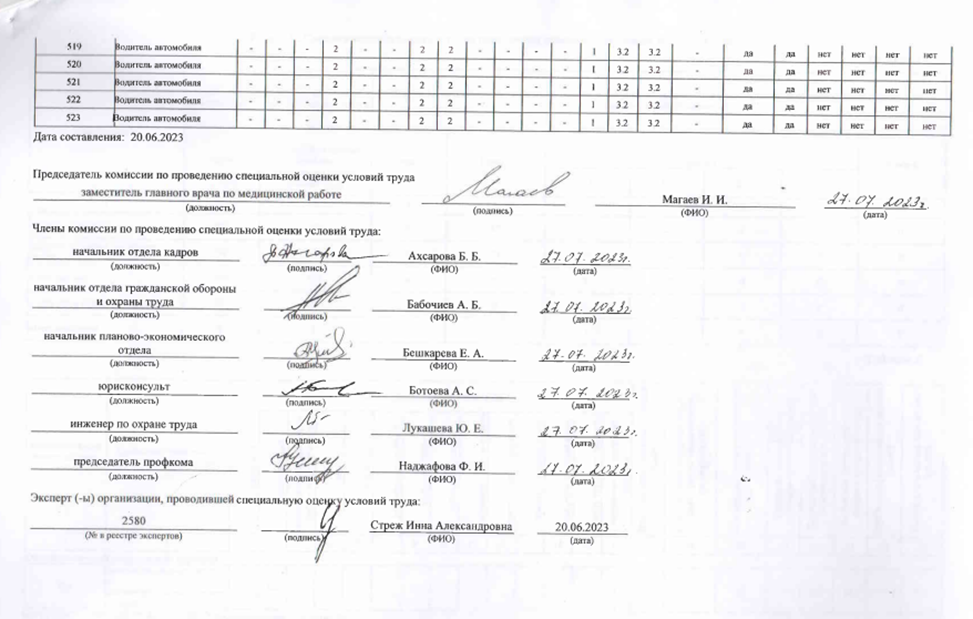 519 Водитель автомобиля - - - 2 - - 2 2 - - - - 1 3.2 3.2 - да да нет нет нет нет
520 Водитель автомобиля - - - 2 - - 2 2 - - - - 1 3.2 3.2 - да да нет нет нет нет
521 Водитель автомобиля - - - 2 - - 2 2 - - - - 1 3.2 3.2 - да да нет нет нет нет
522 Водитель автомобиля - - - 2 - - 2 2 - - - - 1 3.2 3.2 - да да нет нет нет нет
523 Водитель автомобиля - - - 2 - - 2 2 - - - - 1 3.2 3.2 - да да нет нет нет нет
Дата составления: 20.06.2023
Председатель комиссии по проведению специальной оценки условий труда
заместитель главного врача по медицинской работе Магаев Магаев И. И. 27.07.2023г.
(должность) (подпись) (ФИО) (дата)
Члены комиссии по проведению специальной оценки условий труда:
начальник отдела кадров Ахсарова Б. Б. 27.07.2023г.
(должность) (подпись) (ФИО) (дата)
начальник отдела гражданской обороны
и охраны труда Бабочиев А. Б. 27.07.2023г.
(должность) (подпись) (ФИО) (дата)
начальник планово-экономического
отдела Бешкарева Е. А. 27.07.2023г.
(должность) (подпись) (ФИО) (дата)
юрисконсульт Ботоева А. С. 27.07.2023г.
(должность) (подпись) (ФИО) (дата)
инженер по охране труда Лукашева Ю. Е. 27.07.2023г.
(должность) (подпись) (ФИО) (дата)
председатель профкома Наджафова Ф. И. 27.07.2023г.
(должность) (подпись) (ФИО) (дата)
Эксперт (-ы) организации, проводившей специальную оценку условий труда:
2580 Стреж Инна Александровна 20.06.2023
(№ в реестре экспертов) (подпись) (ФИО) (дата)